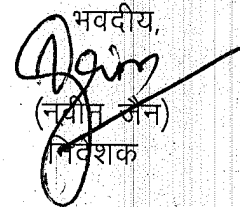 भवदीय,
(नवीन जैन)
निदेशक